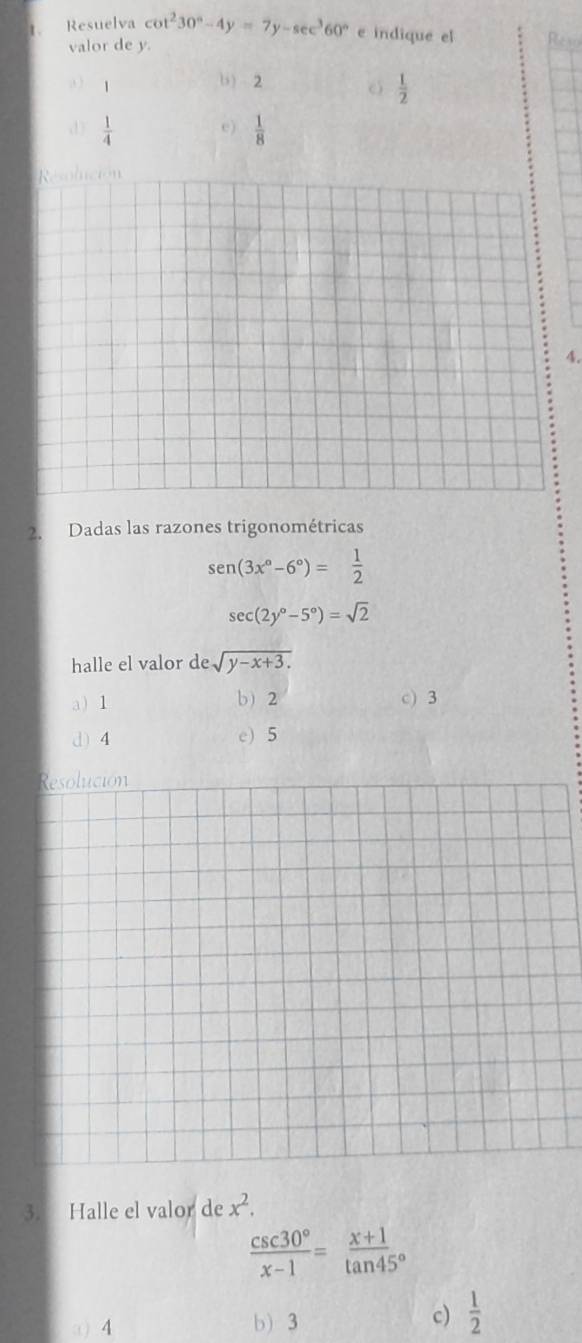 1. Resuelva cot²30° - 4y = 7y - sec³60° e indique el
valor de y.
a) 1 b) 2 c) 1/2
d) 1/4 e) 1/8
Resolución
2. Dadas las razones trigonométricas
sen(3x° - 6°) = 1/2
sec(2y° - 5°) = √2
halle el valor de √(y - x + 3).
a) 1 b) 2 c) 3
d) 4 e) 5
Resolución
3. Halle el valor de x².
csc30°/(x - 1) = (x + 1)/tan45°
a) 4 b) 3 c) 1/2
4.